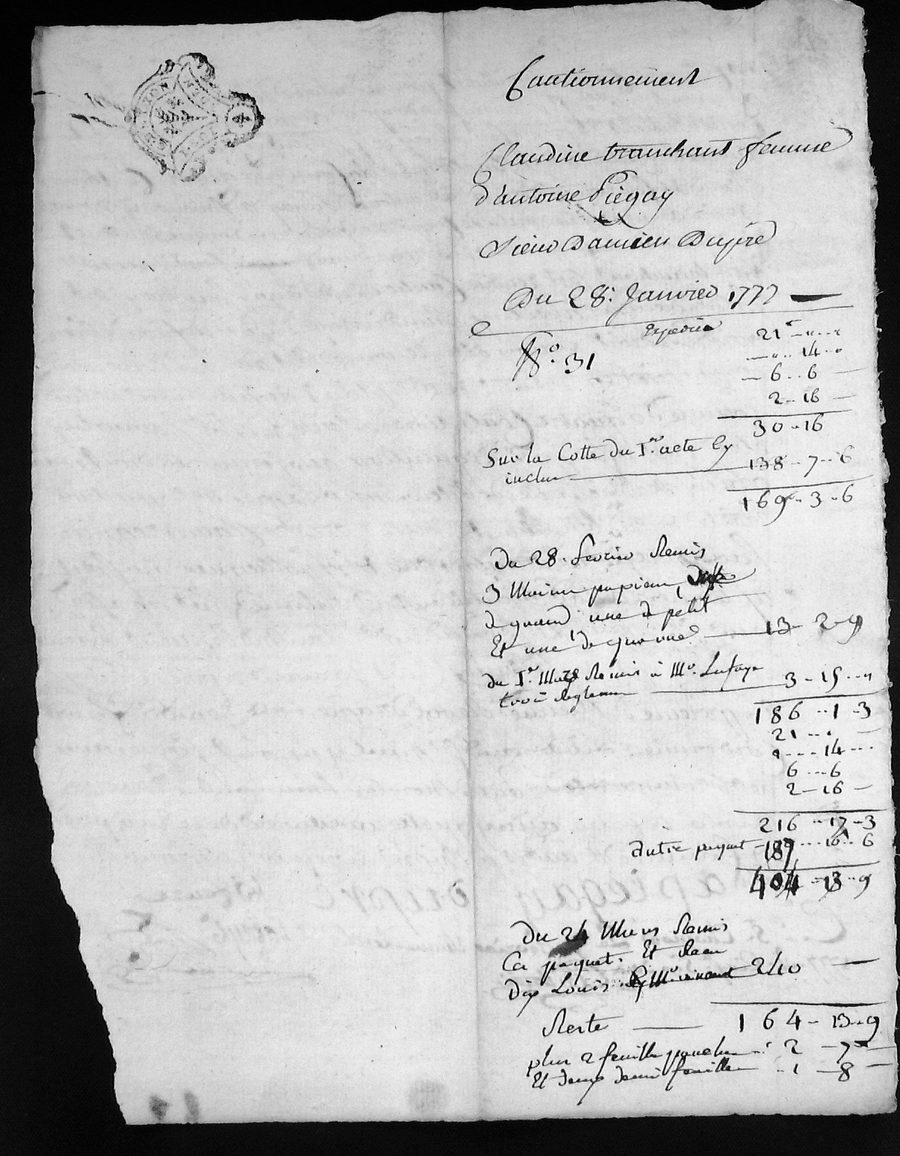 Cautionnement
Claudine tranchant femme
d'antoine Piegay
Sieur Damien Dupré
Du 28. Janvier 1777
Expedié
N.o 31
21
14
6 - 6
2 - 16
30 - 16
Sur la Cotte du I.er acte Cy
inclus 138 - 7 - 6
169 - 3 - 6
Du 28. fevrier Remis
3 Mains papier
de grand une d petit
Et une de 13 - 2 - 9
du I.er Mars Remis à Mr.
trois 3 - 15
186 - 1 - 3
21
14
6 - 6
2 - 16
216 - 17 - 3
autre paquet 187 - 16 - 6
404 - 13 - 9
Du 24 Mars Remis
Ce paquet. Et Recu
Dix Louis 240
Reste 164 - 13 - 9
plus 2 feuilles 2 - 7
Et deux demi feuilles 1 - 8